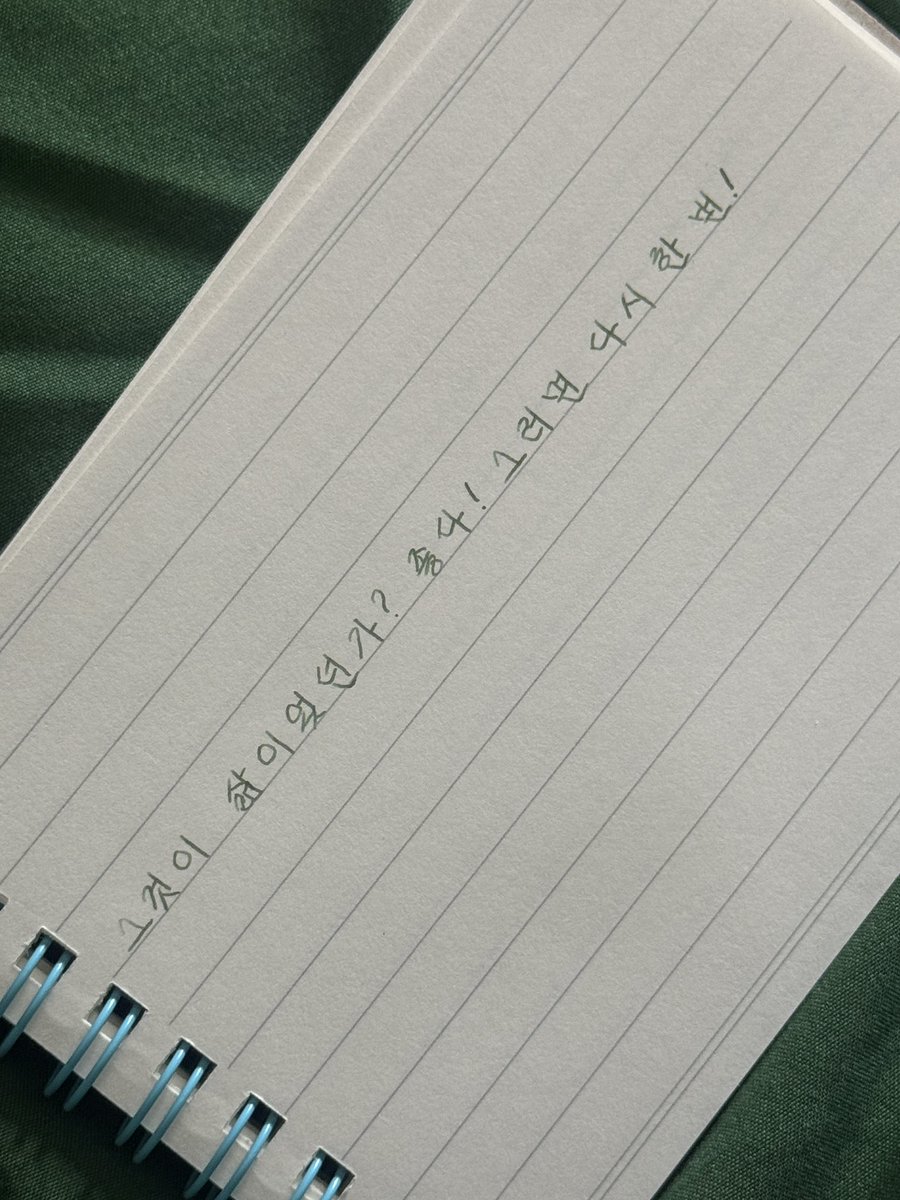 그것이 삶이었던가? 좋다! 그러면 다시 한 번!